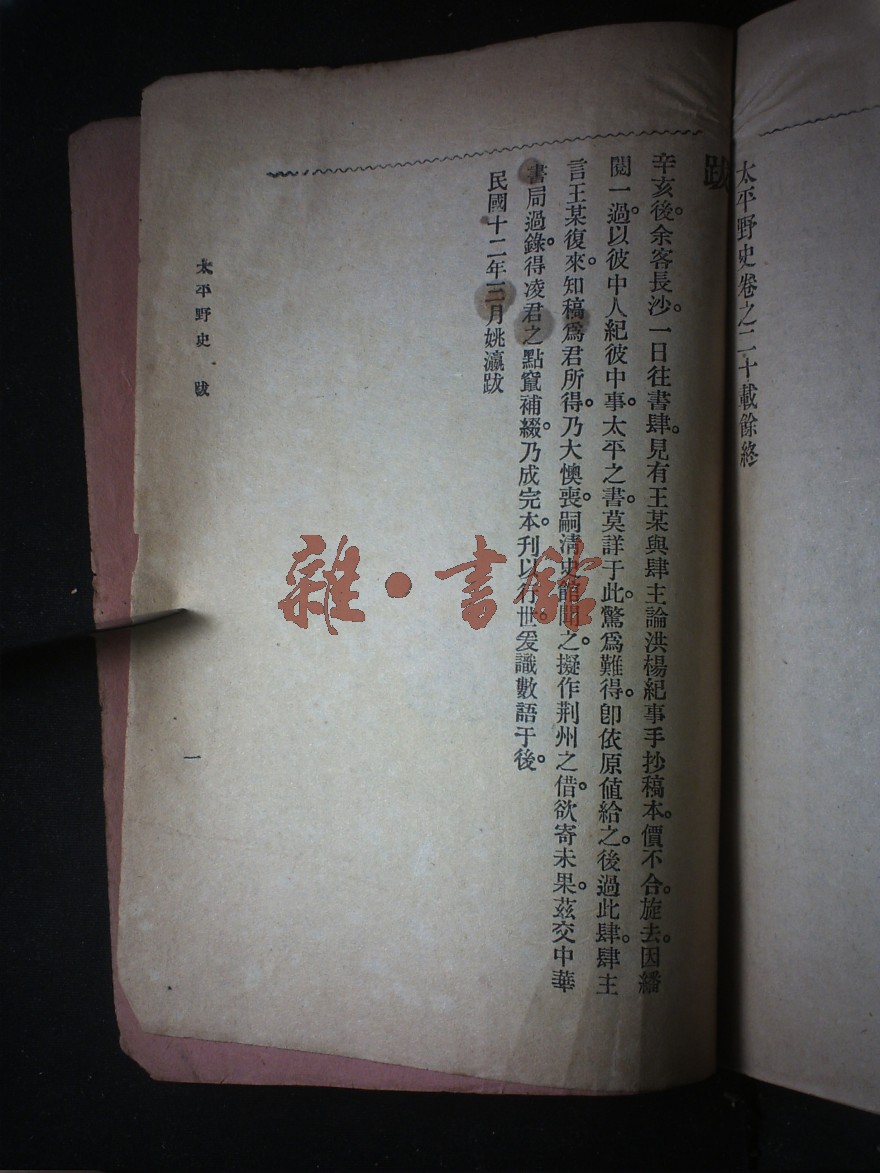 太平野史卷之二十載餘終
跋
辛亥後。余客長沙。一日往書肆。見有王某與肆主論洪楊紀事手抄稿本。價不合。旋去。因繙
閱一過。以彼中人紀彼中事。太平之書。莫詳于此。驚爲難得。卽依原値給之。後過此肆。肆主
言王某復來。知稿爲君所得。乃大懊喪。嗣淸史館聞之。擬作荆州之借。欲寄未果。茲交中華
書局過錄。得凌君之點竄補綴。乃成完本。刊以行世。爰識數語于後。
民國十二年三月姚瀛跋
太平野史 跋
一
雜·書館